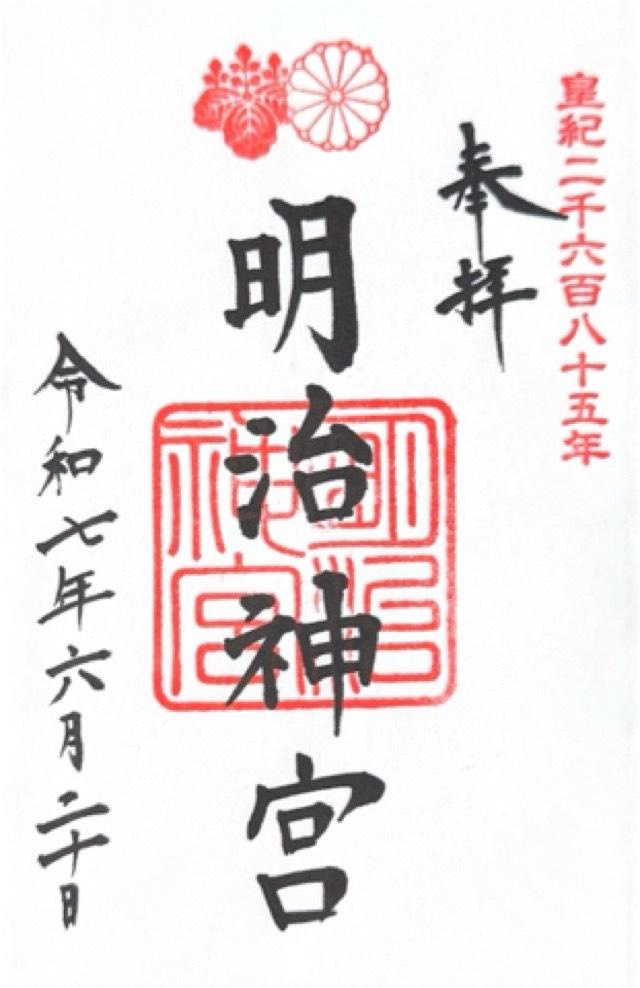 皇紀二千六百八十五年
奉拝
明治神宮
明治神宮
令和七年六月二十日